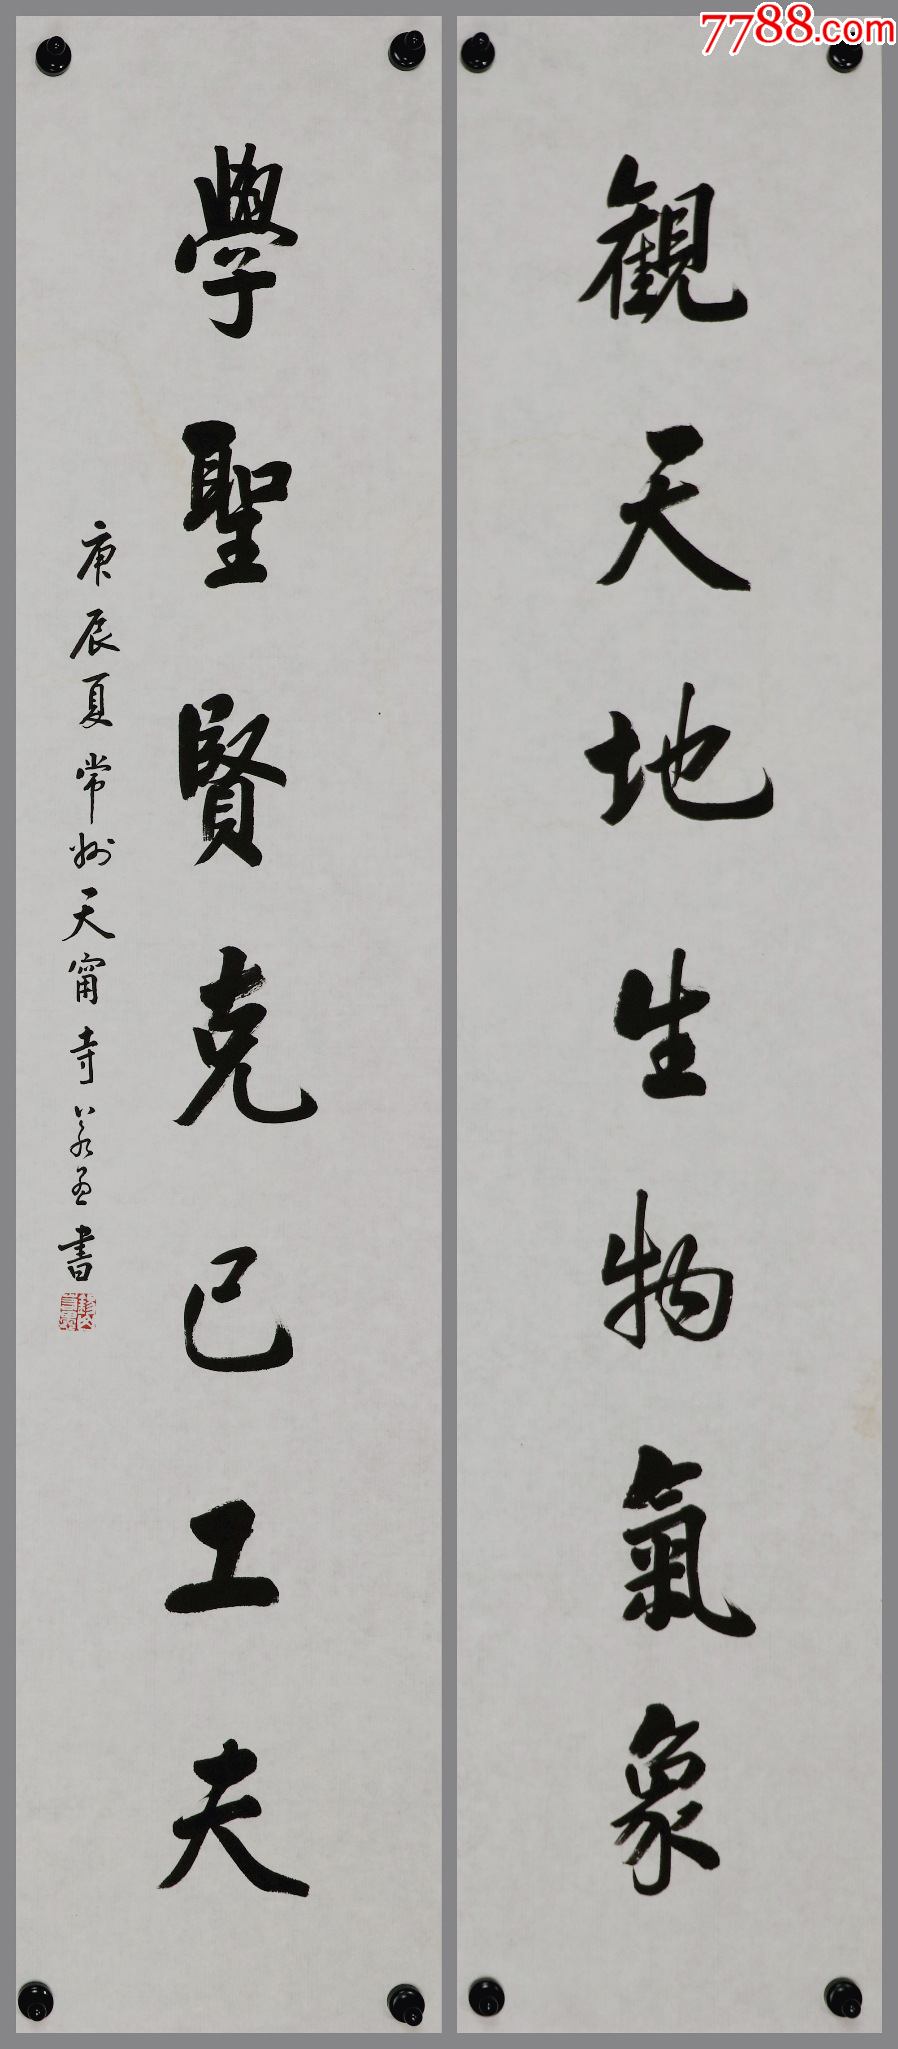 7788.com
觀天地生物氣象
學聖賢克己工夫
庚辰夏常州天甯寺 書